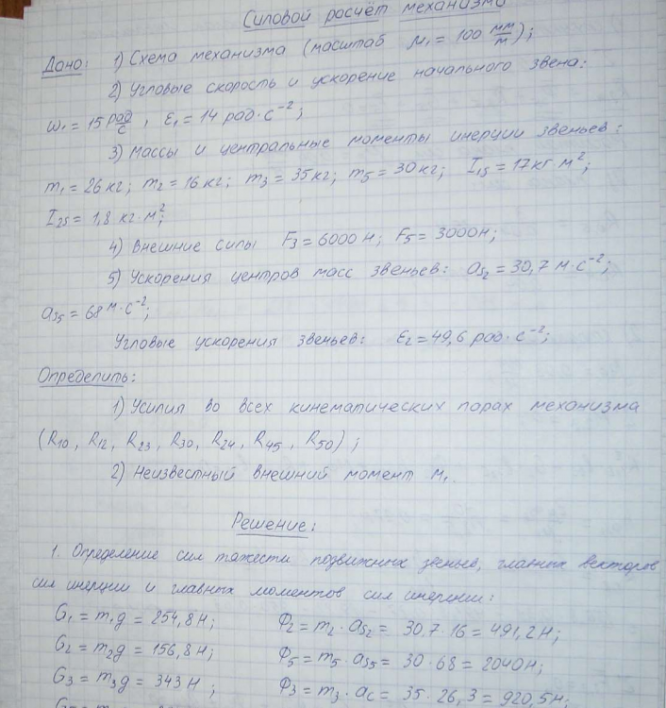 Силовой расчёт механизма
Дано: 1) Схема механизма (масштаб μ₁ = 100 мм/м);
2) Угловые скорость и ускорение начального звена:
ω₁ = 15 рад/с, ε₁ = 14 рад·с⁻²;
3) Массы и центральные моменты инерции звеньев:
m₁ = 26 кг; m₂ = 16 кг; m₃ = 35 кг; m₅ = 30 кг; I₁ₛ = 17 кг·м²;
I₂ₛ = 1,8 кг·м²;
4) Внешние силы F₃ = 6000 Н; F₅ = 3000 Н;
5) Ускорения центров масс звеньев: aₛ₂ = 30,7 м·с⁻²;
aₛ₅ = 68 м·с⁻²;
Угловые ускорения звеньев: ε₂ = 49,6 рад·с⁻²;
Определить:
1) Усилия во всех кинематических парах механизма
(R₁₀, R₁₂, R₂₃, R₃₀, R₂₄, R₄₅, R₅₀);
2) Неизвестный внешний момент M₁.
Решение:
1. Определение сил тяжести подвижных звеньев, главных векторов
сил инерции и главных моментов сил инерции:
G₁ = m₁g = 254,8 Н; Ф₂ = m₂·aₛ₂ = 30,7·16 = 491,2 Н;
G₂ = m₂g = 156,8 Н; Ф₅ = m₅·aₛ₅ = 30·68 = 2040 Н;
G₃ = m₃g = 343 Н; Ф₃ = m₃·a_c = 35·26,3 = 920,5 Н;